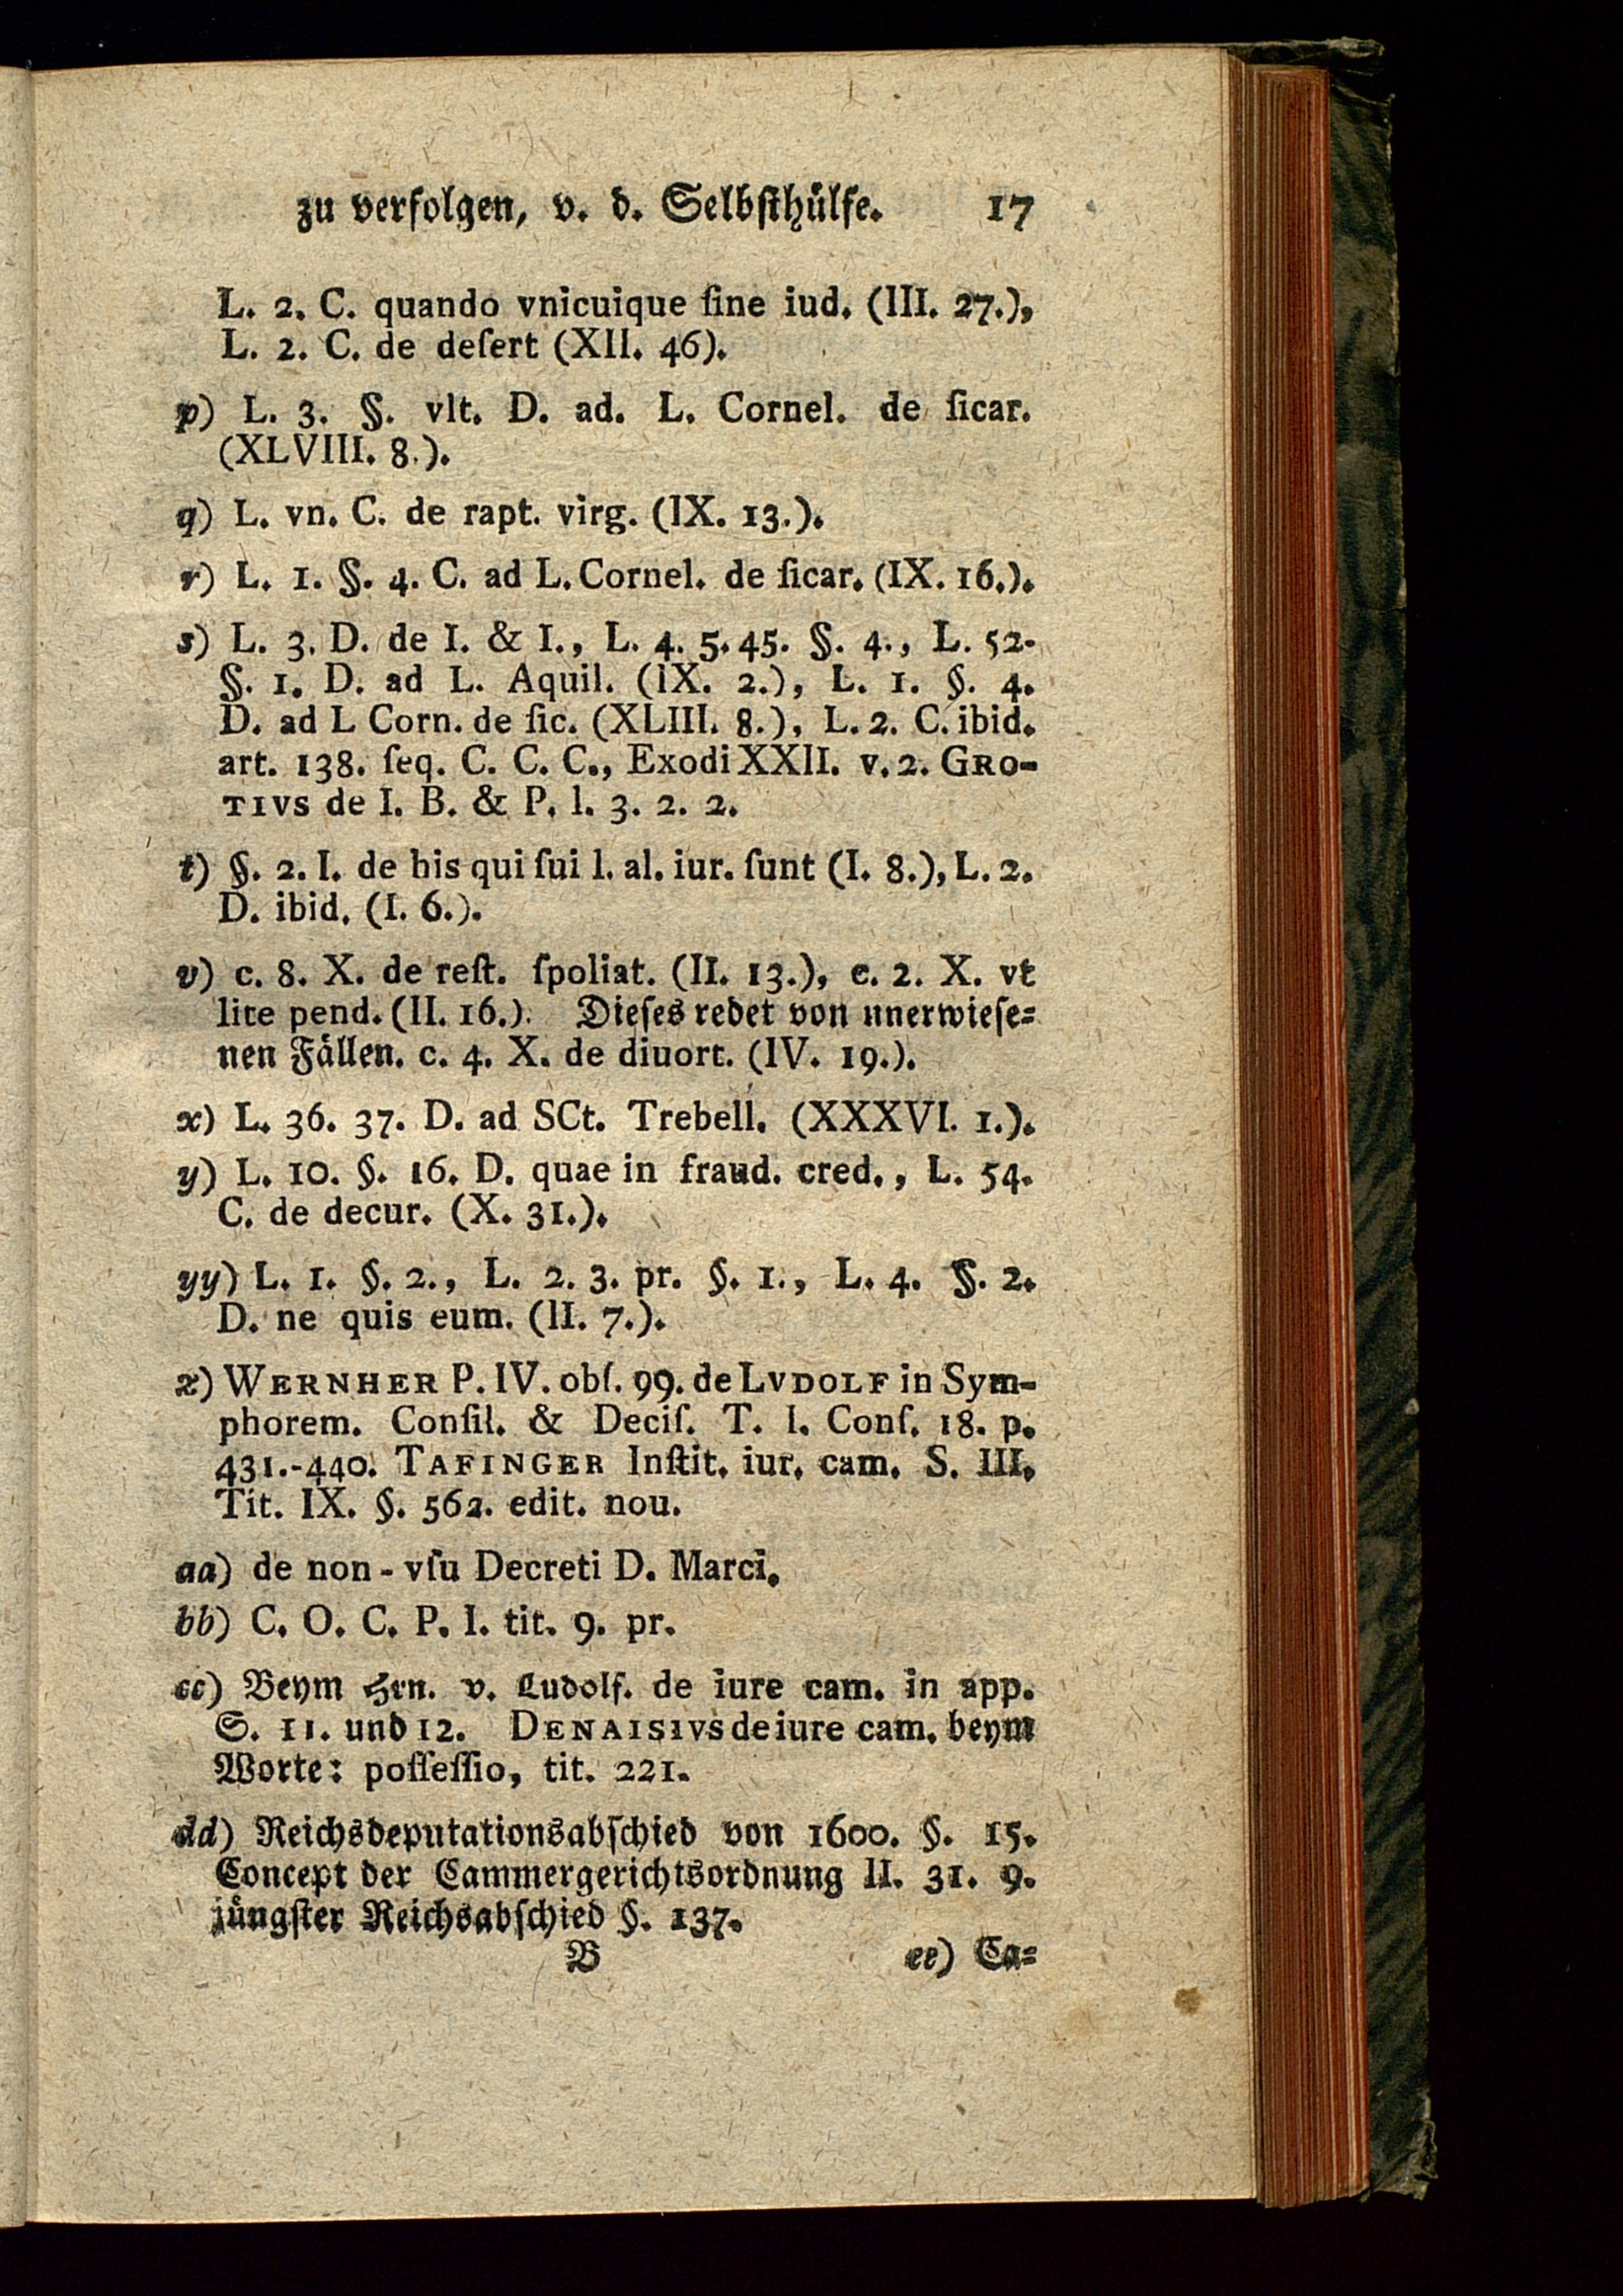 zu verfolgen, v. d. Selbſthülfe. 17
L. 2. C. quando vnicuique ſine iud. (III. 27.),
L. 2. C. de deſert (XII. 46).
p) L. 3. §. vlt. D. ad. L. Cornel. de ſicar.
(XLVIII. 8.).
q) L. vn. C. de rapt. virg. (IX. 13.).
r) L. 1. §. 4. C. ad L. Cornel. de ſicar. (IX. 16.).
s) L. 3. D. de I. & I., L. 4. 5. 45. §. 4., L. 52.
§. 1. D. ad L. Aquil. (IX. 2.), L. 1. §. 4.
D. ad L Corn. de ſic. (XLIII. 8.), L. 2. C. ibid.
art. 138. ſeq. C. C. C., Exodi XXII. v. 2. GRO-
TIVS de I. B. & P. l. 3. 2. 2.
t) §. 2. I. de his qui ſui l. al. iur. ſunt (I. 8.), L. 2.
D. ibid. (I. 6.).
v) c. 8. X. de reſt. ſpoliat. (II. 13.), c. 2. X. vt
lite pend. (II. 16.). Dieſes redet von unerwieſe-
nen Fällen. c. 4. X. de diuort. (IV. 19.).
x) L. 36. 37. D. ad SCt. Trebell. (XXXVI. 1.).
y) L. 10. §. 16. D. quae in fraud. cred., L. 54.
C. de decur. (X. 31.).
yy) L. 1. §. 2., L. 2. 3. pr. §. 1., L. 4. §. 2.
D. ne quis eum. (II. 7.).
z) WERNHER P. IV. obſ. 99. de LVDOLF in Sym-
phorem. Conſil. & Deciſ. T. I. Conſ. 18. p.
431.-440. TAFINGER Inſtit. iur. cam. S. III.
Tit. IX. §. 562. edit. nou.
aa) de non-vſu Decreti D. Marci.
bb) C. O. C. P. I. tit. 9. pr.
cc) Beym Hrn. v. Ludolf. de iure cam. in app.
S. 11. und 12. DENAISIVS de iure cam. beym
Worte: poſſeſſio, tit. 221.
dd) Reichsdeputationsabſchied von 1600. §. 15.
Concept der Cammergerichtsordnung II. 31. 9.
jüngſter Reichsabſchied §. 137.
B ee) Ca-